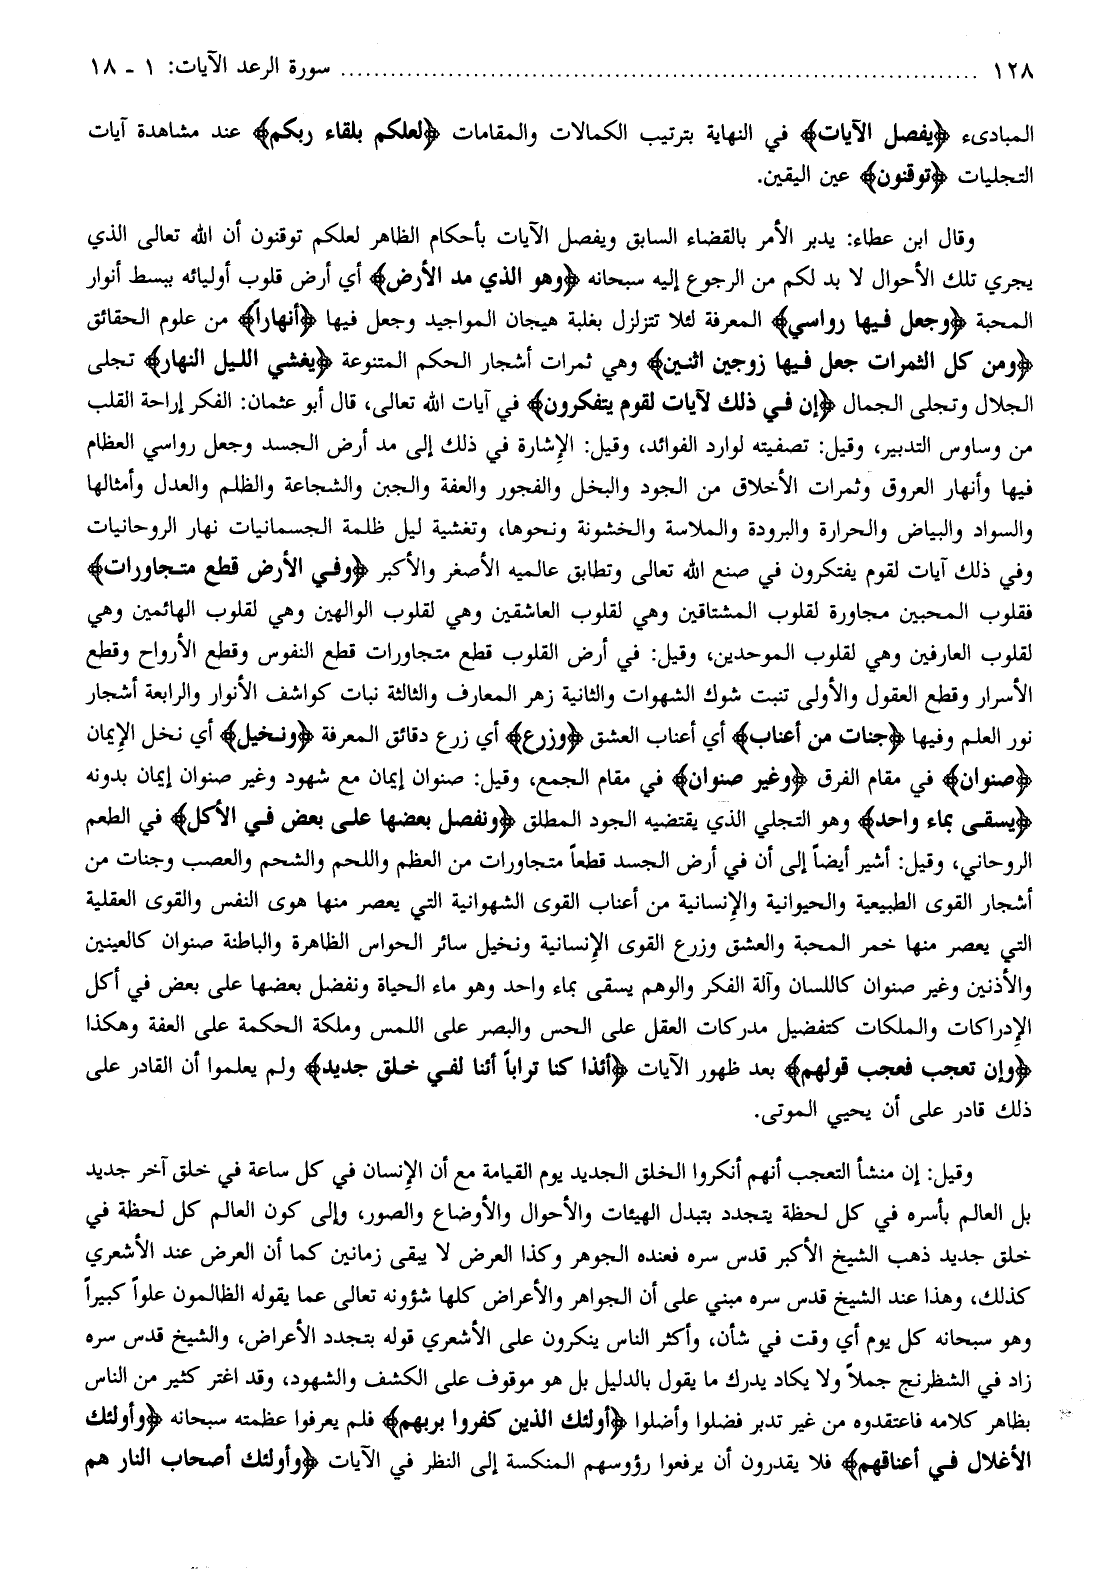 ١٢٨ ........................................................................... سورة الرعد الآيات: ١ - ١٨
المبادىء ﴿يفصل الآيات﴾ في النهاية بترتيب الكمالات والمقامات ﴿لعلكم بلقاء ربكم﴾ عند مشاهدة آيات
التجليات ﴿توقنون﴾ عين اليقين.
وقال ابن عطاء: يدبر الأمر بالقضاء السابق ويفصل الآيات بأحكام الظاهر لعلكم توقنون أن الله تعالى الذي
يجري تلك الأحوال لا بد لكم من الرجوع إليه سبحانه ﴿وهو الذي مد الأرض﴾ أي أرض قلوب أوليائه ببسط أنوار
المحبة ﴿وجعل فيها رواسي﴾ المعرفة لئلا تتزلزل بغلبة هيجان المواجيد وجعل فيها ﴿أنهاراً﴾ من علوم الحقائق
﴿ومن كل الثمرات جعل فيها زوجين اثنين﴾ وهي ثمرات أشجار الحكم المتنوعة ﴿يغشي الليل النهار﴾ تجلى
الجلال وتجلى الجمال ﴿إن في ذلك لآيات لقوم يتفكرون﴾ في آيات الله تعالى، قال أبو عثمان: الفكر إراحة القلب
من وساوس التدبير، وقيل: تصفيته لوارد الفوائد، وقيل: الإشارة في ذلك إلى مد أرض الجسد وجعل رواسي العظام
فيها وأنهار العروق وثمرات الأخلاق من الجود والبخل والفجور والعفة والجبن والشجاعة والظلم والعدل وأمثالها
والسواد والبياض والحرارة والبرودة والملاسة والخشونة ونحوها، وتغشية ليل ظلمة الجسمانيات نهار الروحانيات
وفي ذلك آيات لقوم يفتكرون في صنع الله تعالى وتطابق عالميه الأصغر والأكبر ﴿وفي الأرض قطع متجاورات﴾
فقلوب المحبين مجاورة لقلوب المشتاقين وهي لقلوب العاشقين وهي لقلوب الوالهين وهي لقلوب الهائمين وهي
لقلوب العارفين وهي لقلوب الموحدين، وقيل: في أرض القلوب قطع متجاورات قطع النفوس وقطع الأرواح وقطع
الأسرار وقطع العقول والأولى تنبت شوك الشهوات والثانية زهر المعارف والثالثة نبات كواشف الأنوار والرابعة أشجار
نور العلم وفيها ﴿جنات من أعناب﴾ أي أعناب العشق ﴿وزرع﴾ أي زرع دقائق المعرفة ﴿ونخيل﴾ أي نخل الإيمان
﴿صنوان﴾ في مقام الفرق ﴿وغير صنوان﴾ في مقام الجمع، وقيل: صنوان إيمان مع شهود وغير صنوان إيمان بدونه
﴿يسقى بماء واحد﴾ وهو التجلي الذي يقتضيه الجود المطلق ﴿ونفصل بعضها على بعض في الأكل﴾ في الطعم
الروحاني، وقيل: أشير أيضاً إلى أن في أرض الجسد قطعاً متجاورات من العظم واللحم والشحم والعصب وجنات من
أشجار القوى الطبيعية والحيوانية والإنسانية من أعناب القوى الشهوانية التي يعصر منها هوى النفس والقوى العقلية
التي يعصر منها خمر المحبة والعشق وزرع القوى الإنسانية ونخيل سائر الحواس الظاهرة والباطنة صنوان كالعينين
والأذنين وغير صنوان كاللسان وآلة الفكر والوهم يسقى بماء واحد وهو ماء الحياة ونفضل بعضها على بعض في أكل
الإدراكات والملكات كتفضيل مدركات العقل على الحس والبصر على اللمس وملكة الحكمة على العفة وهكذا
﴿وإن تعجب فعجب قولهم﴾ بعد ظهور الآيات ﴿أئذا كنا تراباً أئنا لفي خلق جديد﴾ ولم يعلموا أن القادر على
ذلك قادر على أن يحيي الموتى.
وقيل: إن منشأ التعجب أنهم أنكروا الخلق الجديد يوم القيامة مع أن الإنسان في كل ساعة في خلق آخر جديد
بل العالم بأسره في كل لحظة يتجدد بتبدل الهيئات والأحوال والأوضاع والصور، وإلى كون العالم كل لحظة في
خلق جديد ذهب الشيخ الأكبر قدس سره فعنده الجوهر وكذا العرض لا يبقى زمانين كما أن العرض عند الأشعري
كذلك، وهذا عند الشيخ قدس سره مبني على أن الجواهر والأعراض كلها شؤونه تعالى عما يقوله الظالمون علواً كبيراً
وهو سبحانه كل يوم أي وقت في شأن، وأكثر الناس ينكرون على الأشعري قوله بتجدد الأعراض، والشيخ قدس سره
زاد في الشطرنج جملاً ولا يكاد يدرك ما يقول بالدليل بل هو موقوف على الكشف والشهود، وقد اغتر كثير من الناس
بظاهر كلامه فاعتقدوه من غير تدبر فضلوا وأضلوا ﴿أولئك الذين كفروا بربهم﴾ فلم يعرفوا عظمته سبحانه ﴿وأولئك
الأغلال في أعناقهم﴾ فلا يقدرون أن يرفعوا رؤوسهم المنكسة إلى النظر في الآيات ﴿وأولئك أصحاب النار هم